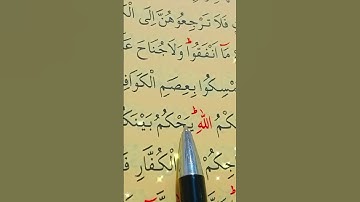 فَلَا تَرْجِعُوهُنَّ اِلَى الْ
مَآ اَنْفَقُوْا ؕ وَلَا جُنَاحَ عَ
مْسِكُوْا بِعِصَمِ الْكَوَافِ
كُمُ اللّٰهِ ؕ يَحْكُمُ بَيْنَكُ
جِكُمْ الْكُفَّارِ فَ